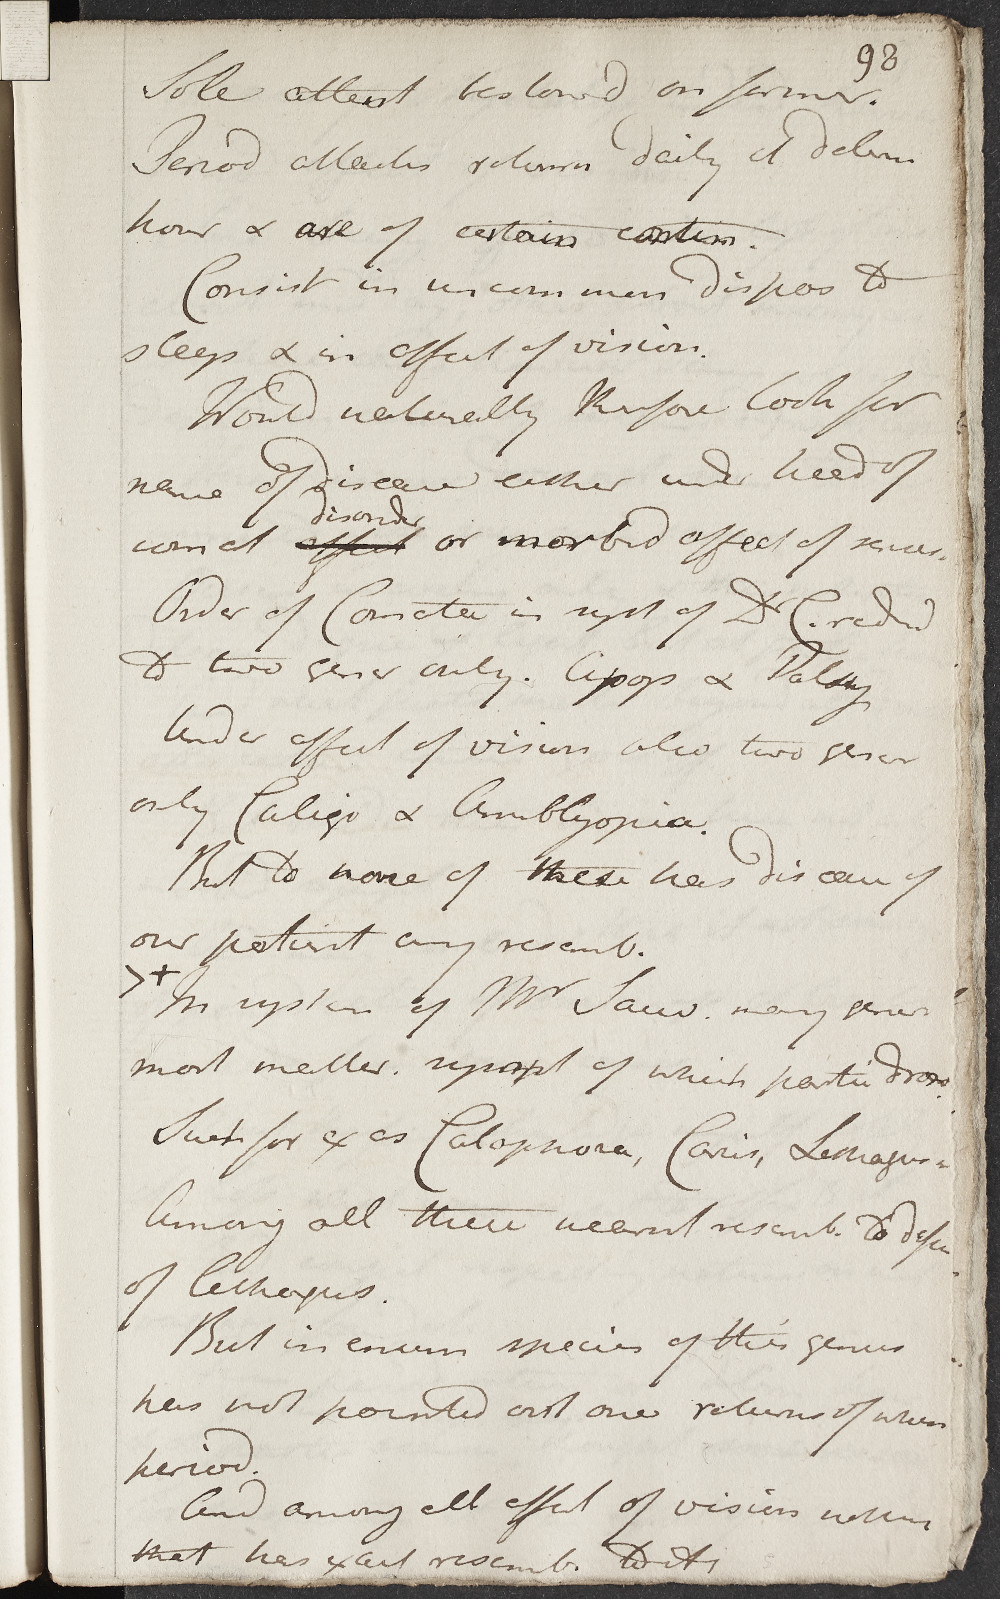 98
Sole attent bestowed on former.
Period attacks return daily at determ
hour & are of certain contin.
Consist in uncommon dispos to
sleep & in affect of vision.
Would naturally therefore look for
name of disease either under head of
disorder
comat affect or morbid affect of senses.
Order of Comatae in syst of Dr C. reduc
to two gener only. Apop & Palsy
Under affect of vision also two gener
only Caligo & Amblyopia.
But to none of these has disease of
our patient any resemb.
>+ In system of Mr Sauv. many gener
most matter. sympt of which partic drow
Such for ex as Cataphora, Carus, Lethargus
Among all these nearest resemb. to
of Lethargus.
But in enum species of this genus
has not pointed out one returns of when
period.
And among all affect of vision nothing
that has exact resemb. to it